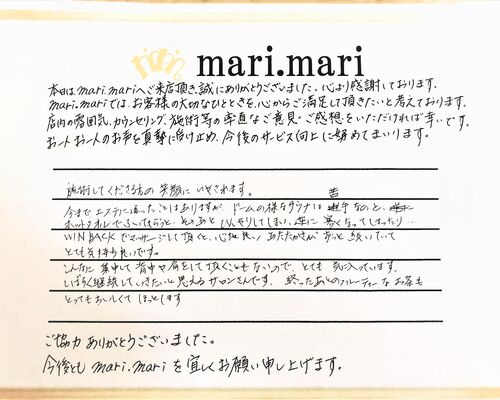 mari.mari
本日は mari.mariへご来店頂き誠にありがとうございました。心より感謝しております。
mari.mariでは、お客様の大切なひとときを、心からご満足して頂きたいと考えております。
店内の雰囲気、カウンセリング、施術等の率直なご意見・ご感想をいただければ幸いです。
お一人お一人のお声を真摯に受け止め、今後のサービス向上に努めてまいります。
施術してくださる方の笑顔にいやされます。
今までエステに通ったことはありますが、ドームの様なサウナは苦手なのと、
ホットタオルでふいてもらうと、そのあとひんやりしてしまい、逆に寒くなってしまったり…
WINBACKでマッサージして頂くと、心地良いあたたかさがずっと続いていて
とても気持ち良いです。
こんなに集中して背中や肩をして頂くこともないので、とても気に入っています。
しばらく継続していきたいと思えるサロンさんです。終ったあとのフルーティーなお茶も
とってもおいしくてほっとします
ご協力ありがとうございました。
今後とも mari.mari を宜しくお願い申し上げます。